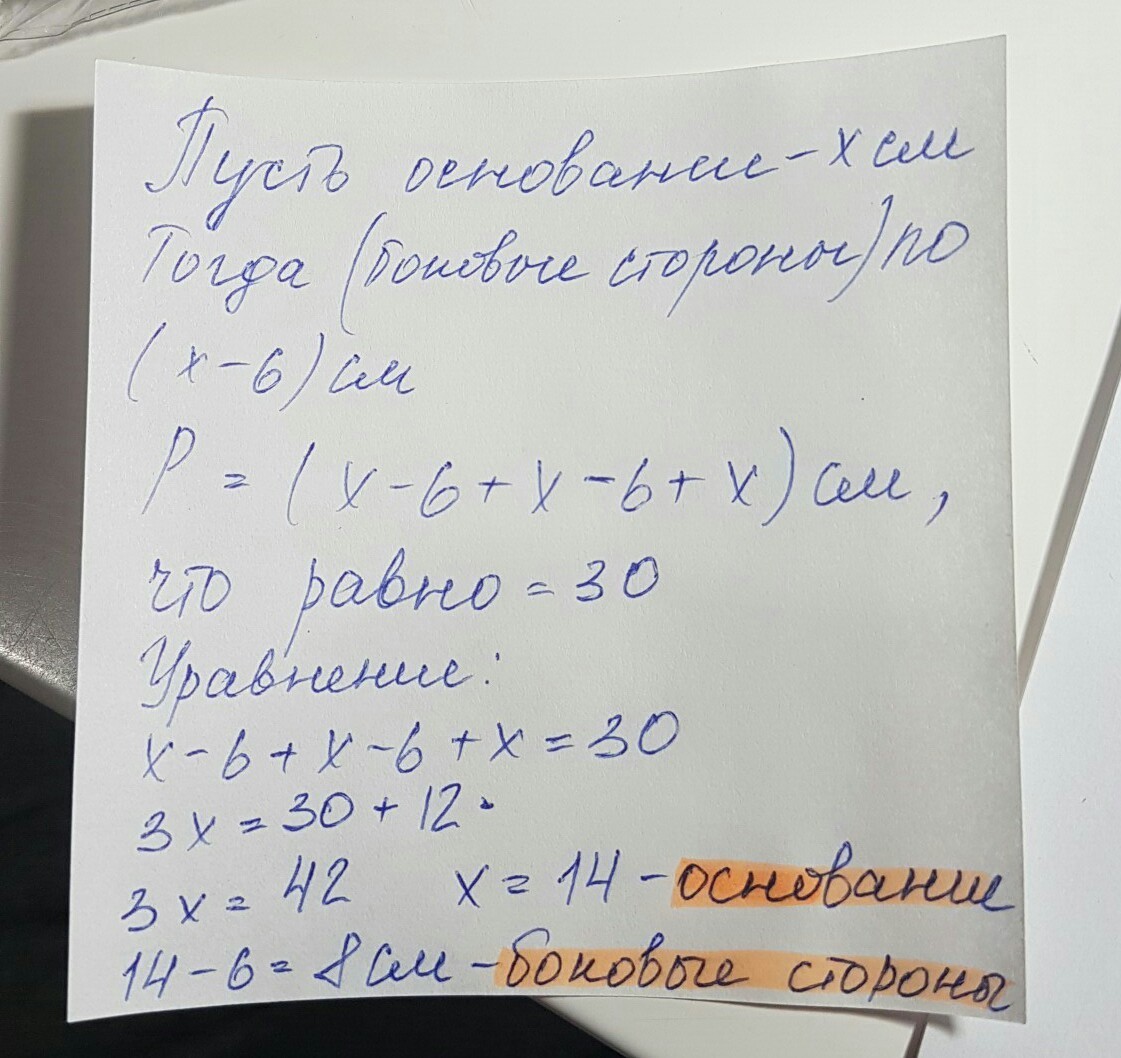 Пусть основание - x см
Тогда (боковые стороны) по
(x-6) см
P = (x-6+x-6+x) см,
что равно = 30
Уравнение:
x-6+x-6+x=30
3x=30+12.
3x=42 x=14 - основание
14-6=8 см - боковые стороны